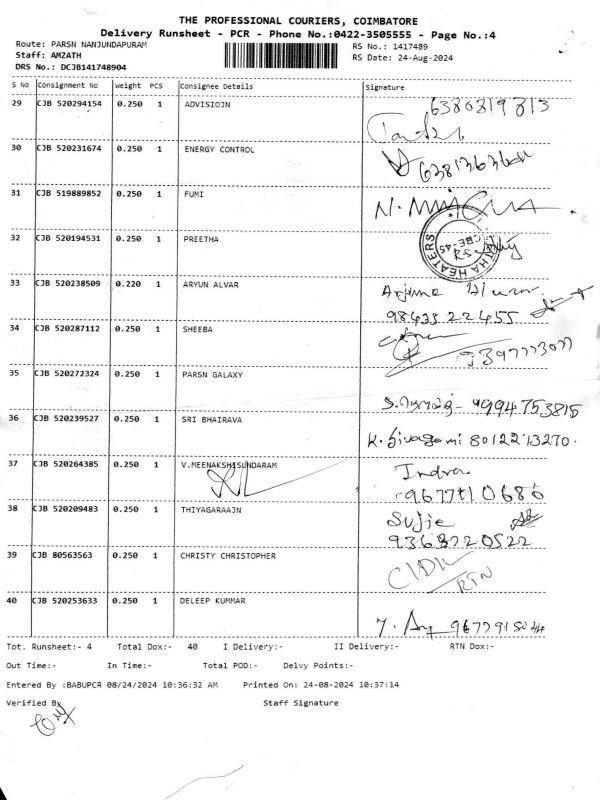 THE PROFESSIONAL COURIERS, COIMBATORE
Delivery Runsheet - PCR - Phone No.:0422-3505555 - Page No.:4
Route: PARSN NANJUNDAPURAM RS No.: 1417489
Staff: AMZATH RS Date: 24-Aug-2024
DRS No.: DCJB141748904
S No Consignment No Weight PCS Consignee Details Signature
29 CJB 520294154 0.250 1 ADVISIOJN 6380819813
30 CJB 520231674 0.250 1 ENERGY CONTROL
31 CJB 519889852 0.250 1 FUMI
32 CJB 520194531 0.250 1 PREETHA
HEATERS CBE-45
33 CJB 520238509 0.220 1 ARYUN ALVAR Arjuna
98433 22455
34 CJB 520287112 0.250 1 SHEEBA
35 CJB 520272324 0.250 1 PARSN GALAXY
9994753815
36 CJB 520239527 0.250 1 SRI BHAIRAVA
K. Sivagami 8012213270.
37 CJB 520264385 0.250 1 V.MEENAKSHISUNDARAM Indra
9677410686
38 CJB 520209483 0.250 1 THIYAGARAAJN Sujie
9363720522
39 CJB 80563563 0.250 1 CHRISTY CHRISTOPHER
RTN
40 CJB 520253633 0.250 1 DELEEP KUMMAR
Tot. Runsheet:- 4 Total Dox:- 40 I Delivery:- II Delivery:- RTN Dox:-
Out Time:- In Time:- Total POD:- Delvy Points:-
Entered By :BABUPCR 08/24/2024 10:36:32 AM Printed On: 24-08-2024 10:37:14
Verified By Staff Signature